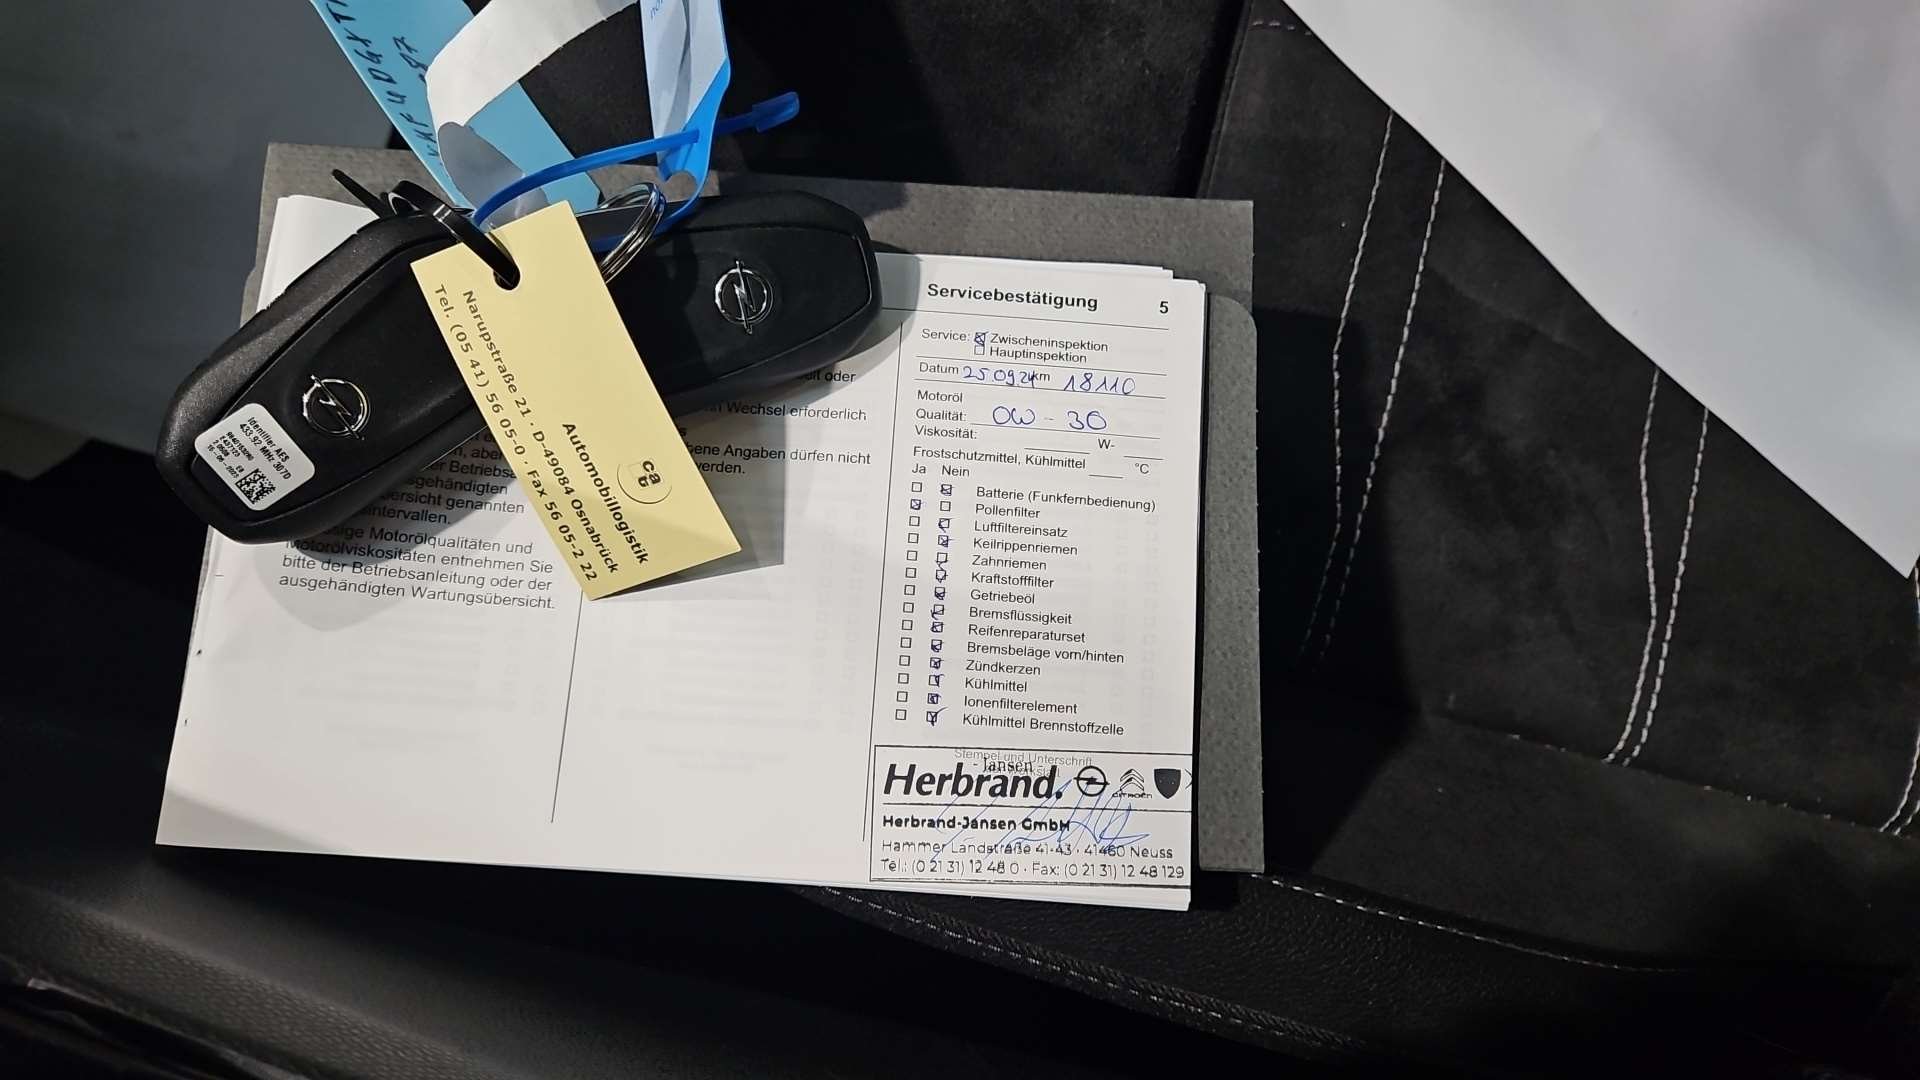 Servicebestätigung 5
Service: Zwischeninspektion
Hauptinspektion
Datum 25.09.24 km 18110
Motoröl
Qualität: 0W-30
Viskosität: W-
Frostschutzmittel, Kühlmittel °C
Ja Nein
Batterie (Funkfernbedienung)
Pollenfilter
Luftfiltereinsatz
Keilrippenriemen
Zahnriemen
Kraftstofffilter
Getriebeöl
Bremsflüssigkeit
Reifenreparaturset
Bremsbeläge vorn/hinten
Zündkerzen
Kühlmittel
Ionenfilterelement
Kühlmittel Brennstoffzelle
Stempel und Unterschrift
- Jansen -
Herbrand.
CITROËN
Herbrand-Jansen GmbH
Hammer Landstraße 41-43 · 41460 Neuss
Tel.: (0 21 31) 12 48 0 · Fax: (0 21 31) 12 48 129
oder
Wechsel erforderlich
Angaben dürfen nicht
werden.
ausgehändigten
genannten
Motorölqualitäten und
Motorölviskositäten entnehmen Sie
bitte der Betriebsanleitung oder der
ausgehändigten Wartungsübersicht.
Automobillogistik
Narupstraße 21 · D-49084 Osnabrück
Tel. (05 41) 56 05-0 · Fax 56 05-2 22
Identifier AES
433.92 MHz 307D